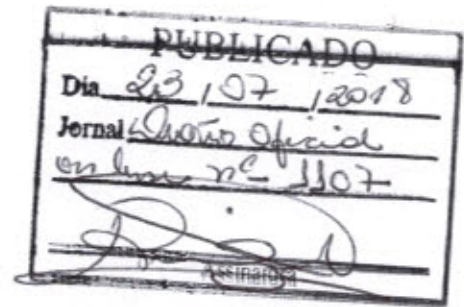 PUBLICADO
Dia 23 / 07 / 2018
Jornal Diário Oficial
on line nº 1107
Assinatura